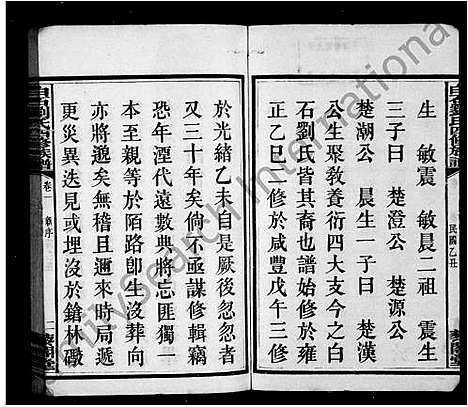 生 敏震 敏晨二祖 震生
三子曰 楚澄公 楚源公
楚潮公 晨生一子曰 楚漢
公生聚敎養衍四大支今白
石劉氏皆其裔也譜始修於雍
正乙巳一修於咸豐戊午三修
民國乙丑
白石劉氏四修族譜
卷一 章序
於光緒乙未自是厥後忽忽者
又三十年矣倘不亟修輯竊
恐年湮代遠數典將忘匪獨一
本至親等於陌路卽生沒葬向
亦將邈矣無稽且邇來時局遞
更災異迭見或埋沒於鎗林礮
Unity Search International